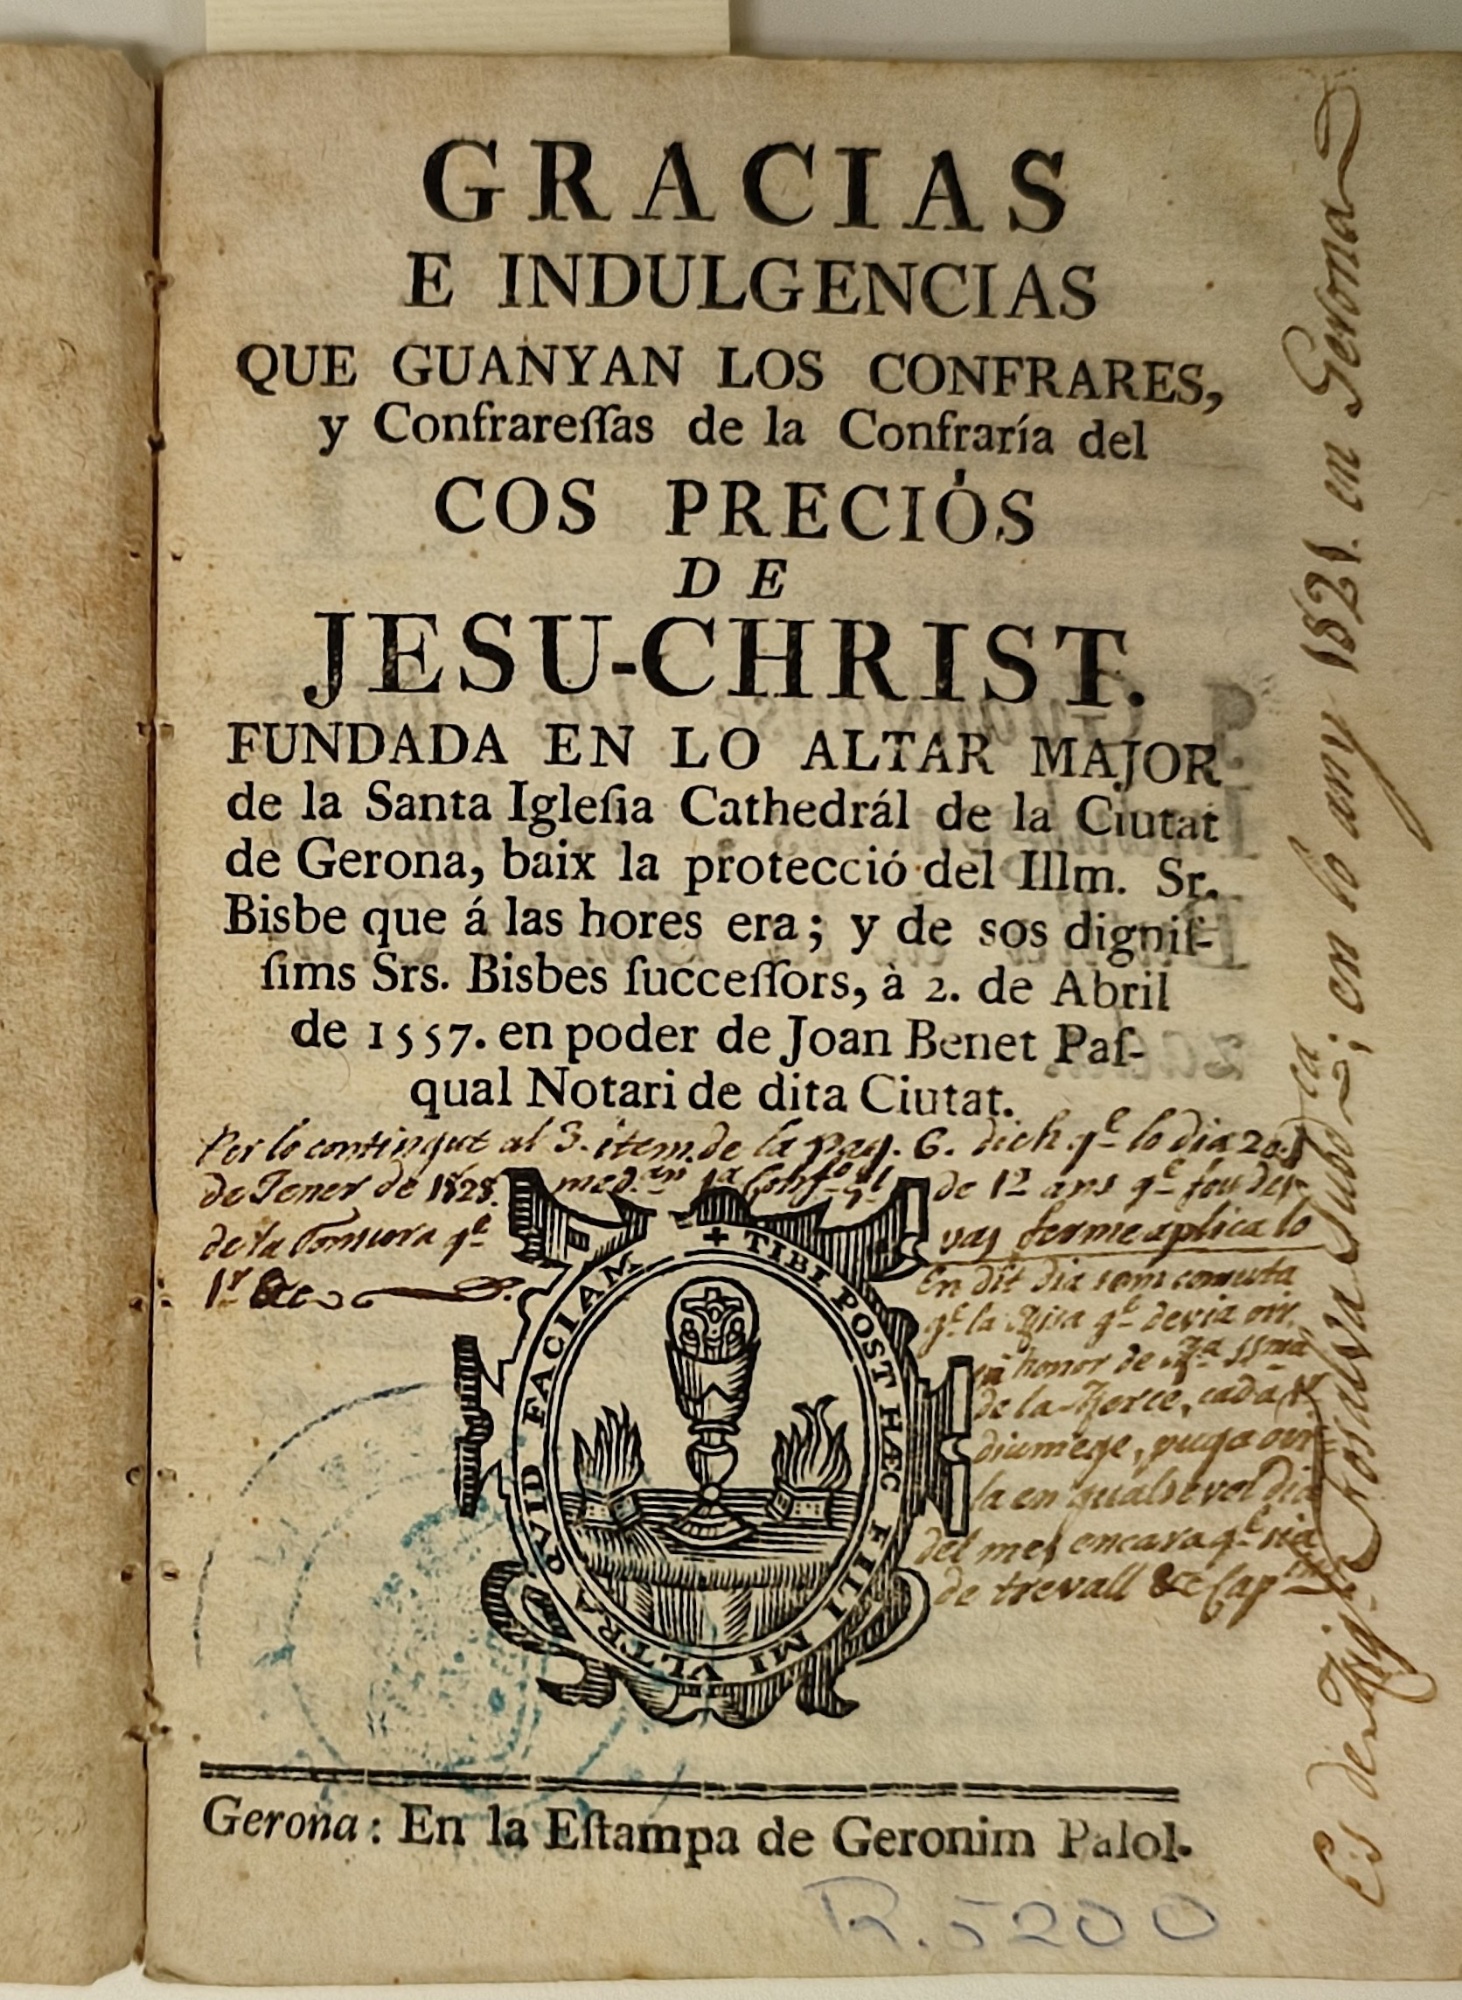 GRACIAS
E INDULGENCIAS
QUE GUANYAN LOS CONFRARES,
y Confrareſſas de la Confraría del
COS PRECIÓS
DE
JESU-CHRIST.
FUNDADA EN LO ALTAR MAJOR
de la Santa Igleſia Cathedrál de la Ciutat
de Gerona, baix la protecció del Illm. Sr.
Bisbe que á las hores era; y de sos digniſ-
ſims Srs. Bisbes ſucceſſors, à 2. de Abril
de 1557. en poder de Joan Benet Paſ-
qual Notari de dita Ciutat.
Per lo contingut al 3. item. de la pag. 6. dich q.e lo dia 20.
de Jener de 1828. de 12 ans q.e fou
de la Tonsura q.e ferme aplica lo
1.r &c
En dit dia
q.e la Misa q.e devia oir
en honor de
de la Merce, cada
diumege, puga oir
la en qualsevol dia
del mes encara q.e sia
de trevall &c
+ TIBI POST HÆC FILI MI VLTRA QVID FACIAM
Gerona: En la Eſtampa de Geronim Palol.
R. 5200
Es de Mig.l Rosalva ; en lo any 1821. en Gerona